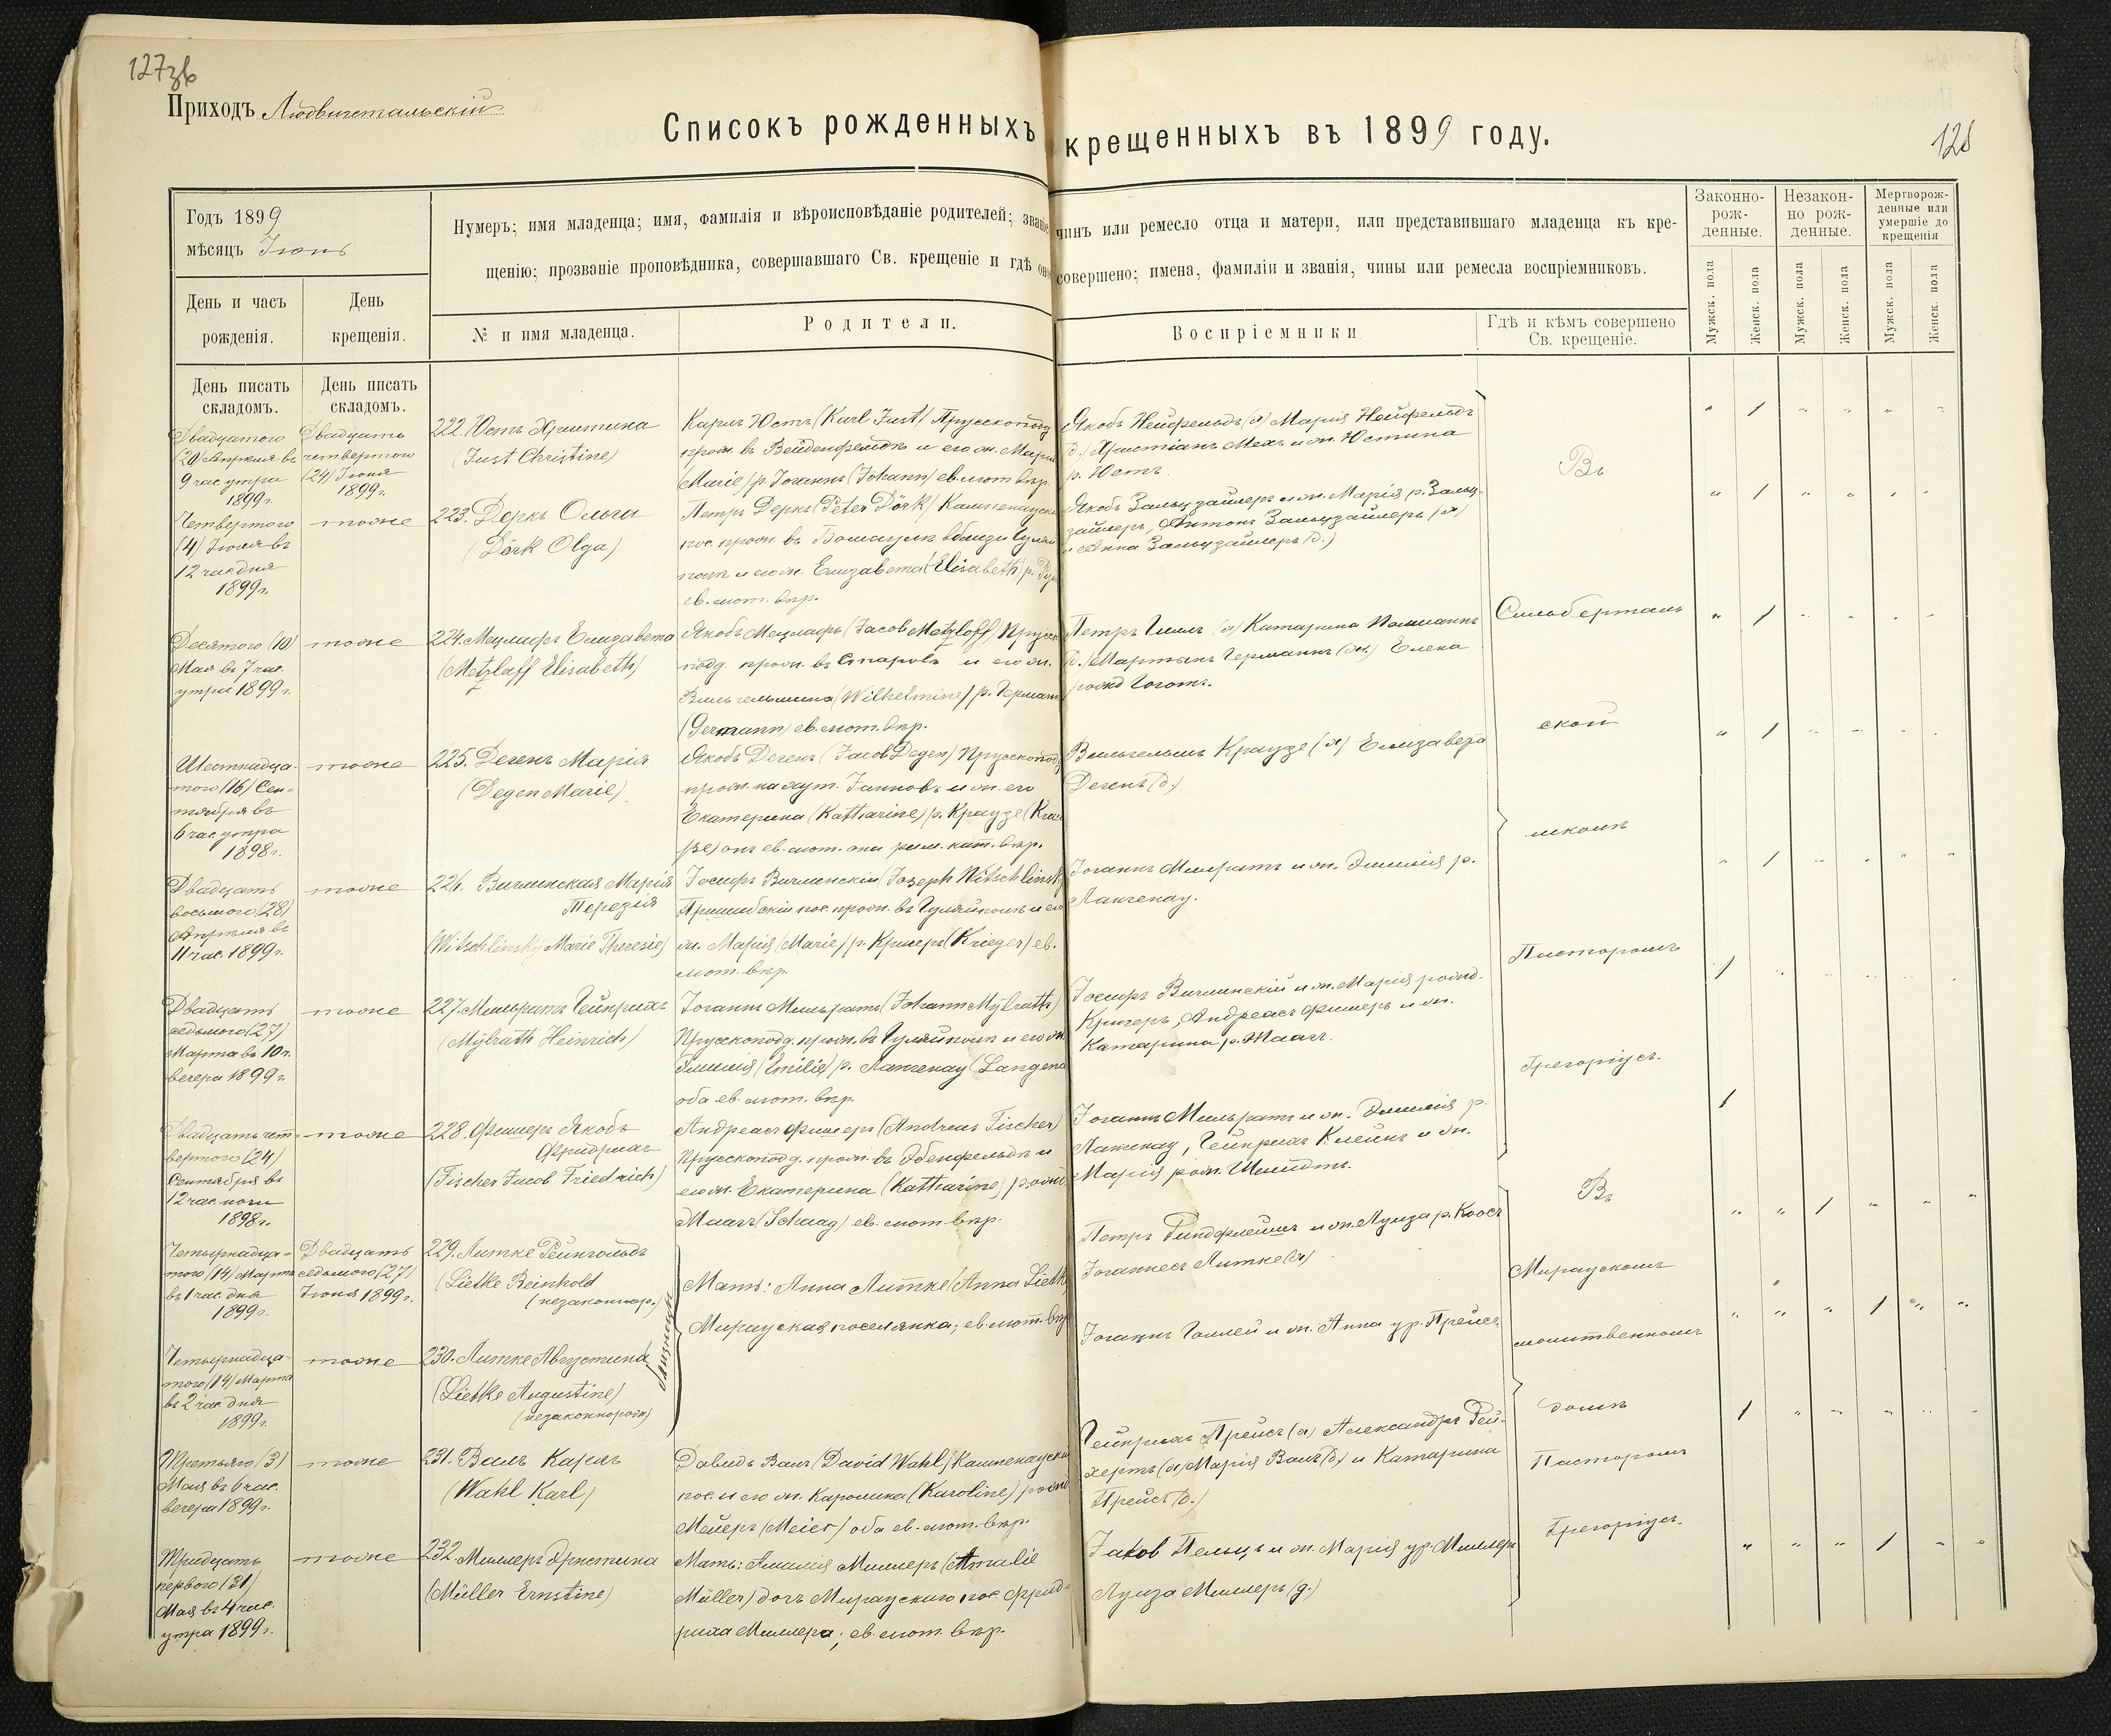 127зв
Приходъ Людвигстальскій
Списокъ рожденныхъ
крещенныхъ въ 1899 году.
128
Годъ 1899
мѣсяцъ Іюнь
Нумеръ; имя младенца; имя, фамилія и вѣроисповѣданіе родителей; званіе
чинъ или ремесло отца и матери, или представившаго младенца къ кре-
щенію; прозваніе проповѣдника, совершавшаго Св. крещеніе и гдѣ оно
совершено; имена, фамиліи и званія, чины или ремесла воспріемниковъ.
Законно-
рож-
денные.
Незакон-
но рож-
денные.
Мертворож-
денные или
умершіе до
крещенія
День и часъ
рожденія.
День
крещенія.
№ и имя младенца.
Родители.
Воспріемники
Гдѣ и кѣмъ совершено
Св. крещеніе.
Мужск. пола
Женск. пола
Мужск. пола
Женск. пола
Мужск. пола
Женск. пола
День писать
складомъ.
День писать
складомъ.
Двадцатого
(20) Апрѣля въ
9 час. утра
1899г.
Двадцать
четвертого
(24) Іюня
1899г.
222. Юстъ Христина
(Just Christine)
Карлъ Юстъ (Karl Just) Прусскоподд
прож. въ Вейденфельдѣ и его ж. Марія
(Marie) р. Іоганнъ (Johann) ев. лют. впр.
Якобъ Нейфельдъ (х) Марія Нейфельдъ
(д.) Христіанъ Мехъ и ж. Юстина
р. Юстъ.
Въ
Четвертого
(4) Іюня въ
12 час. дня
1899г.
тоже
223. Деркъ Ольга
(Dörk Olga)
Петръ Деркъ (Peter Dörk) Кампенауск
пос. прож. въ вблизи Гуляй
полѣ и его ж. Елизавета (Elisabeth) р.
ев. лют. впр.
Якобъ Зальцзайлеръ и ж. Марія р. Зальц-
зайлеръ, Антонъ Зальцзайлеръ (х)
и Анна Зальцзайлеръ (д.)
Десятого (10)
Мая въ 7 час.
утра 1899г.
тоже
224. Мецлафъ Елизавета
(Metzlaff Elisabeth)
Якобъ Мецлафъ (Jacob Metzloff) Прусск
подд. прож. въ и его ж.
Вильгельмина (Wilhelmine) р. Германъ
(Germann) ев. лют. впр.
Петръ Гиллъ (х) Катарина
(д.) Мартынъ Германнъ (ж.) Елена
рожд.
Сильберталь
ской
Шестнадца-
того (16) Сен-
тября въ
6 час. утра
1898г.
тоже
225. Дегенъ Марія
(Degen Marie)
Якобъ Дегенъ (Jacob Degen) Прусскоподд
прож. на хут. и ж. его
Екатерина (Katharine) р. Краузе (Krau
se) онъ ев. лют. она рим. кат. впр.
Вильгельмъ Краузе (х) Елизавета
Дегенъ (д.)
школѣ
Двадцать
восьмого (28)
Апрѣля въ
11 час. 1899г.
тоже
226. Вичлинская Марія
Терезія
(Witschlinsky Marie Theresie)
Іосифъ Вичлинскій (Joseph Witschlinsky
Пришибскій пос. прож. въ Гуляйполѣ и его
ж. Марія (Marie) р. Кригеръ (Krieger) ев.
лют. впр.
Іоганнъ Мильратъ и ж. Эмилія р.
Лангенау.
Пасторомъ
Двадцать
седьмого (27)
Марта въ 10 ч.
вечера 1899г.
тоже
227. Мильратъ Гейнрихъ
(Mÿlrath Heinrich)
Іоганнъ Мильратъ (Johann Mÿlrath)
Прусскоподд. прож. въ Гуляйполѣ и его ж.
Эмилія (Emilie) р. Лангенау (Langena
оба ев. лют. впр.
Іосифъ Вичлинскій и ж. Марія рожд.
Кригеръ, Андреасъ Фишеръ и ж.
Катарина р. Шаагъ.
Грегоріусъ.
Двадцать чет-
вертого (24)
Сентября въ
12 час. ночи
1898г.
тоже
228. Фишеръ Якобъ
Фридрихъ
(Fischer Jacob Friedrich)
Андреасъ Фишеръ (Andreas Fischer)
Прусскоподд. прож. въ Эбенфельдѣ и
его ж. Екатерина (Katharine) рожд
Шаагъ (Schaag) ев. лют. впр.
Іоганнъ Мильратъ и ж. Эмилія р.
Лангенау, Гейнрихъ Клейнъ и ж.
Марія рож. Шмидтъ.
Въ
Четырнадца-
того (14) Марта
въ 1 час. дня
1899г.
Двадцать
седьмого (27)
Іюня 1899г.
229. Литке Рейнгольдъ
(Lietke Reinhold
(незаконнор.)
Близнецы
Мать: Анна Литке (Anna Lietk
Мирауская поселянка; ев. лют. впр
Петръ Риндфлейшъ и ж. Луиза р. Коосъ
Іоганнесъ Литке (х)
Мираускомъ
Четырнадца-
того (14) Марта
въ 2 час. дня
1899г.
тоже
230. Литке Августина
(Lietke Augustine)
(незаконнорож)
Іоганнъ Голлей и ж. Анна ур. Прейсъ
молитвенномъ
домѣ
Третьяго (3)
Мая въ 6 час.
вечера 1899г.
тоже
231. Валь Карлъ
(Wahl Karl)
Давидъ Валь (David Wahl) Кампенауск
пос. и его ж. Каролина (Karoline) рожд
Мейеръ (Meier) оба ев. лют. впр.
Гейнрихъ Прейсъ (х) Александръ Рей-
хертъ (х) Марія Валь (д.) и Катарина
Прейсъ (д.)
Пасторомъ
Тридцать
перваго (31)
Мая въ 4 час.
утра 1899г.
тоже
232. Миллеръ Эрнстина
(Müller Ernstine)
Мать: Амалія Миллеръ (Amalie
Müller) дочь Мирауского пос. Фрид-
риха Миллера; ев. лют. впр.
Jakob Пельцъ и ж. Марія ур. Миллеръ
Луиза Миллеръ (д.)
Грегоріусъ.